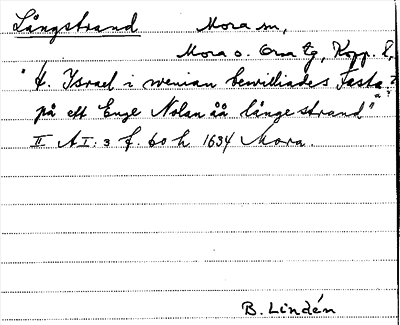 Långstrand Mora sn,
Mora o. Orsa tg, Kopp. l.
"H. Israel i wenian bewilliades Fasta
på ett Enge Nolan åå långe strand"
II AI:3 f. 60 h 1634 Mora.
B. Lindén